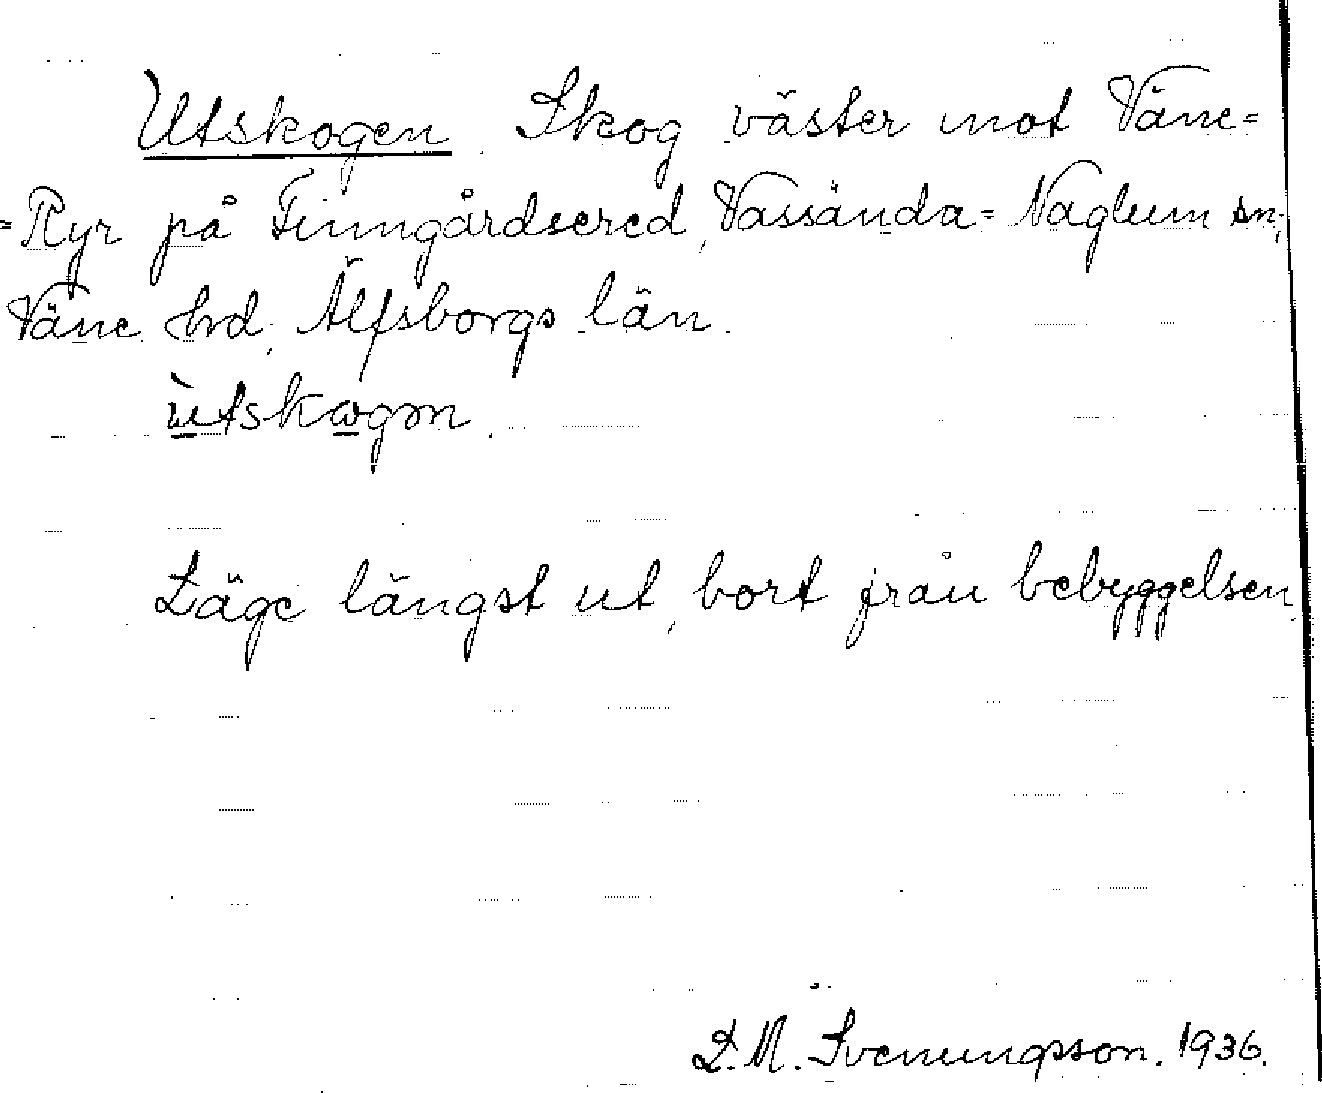 Utskogen. Skog väster mot Väne=
=Ryr på Finngårdsered, Vassända=Naglum sn,
Väne hrd, Älfsborgs län.
ùtskωgən.
Läge längst ut, bort från bebyggelsen.
L. M. Svenungsson. 1936.